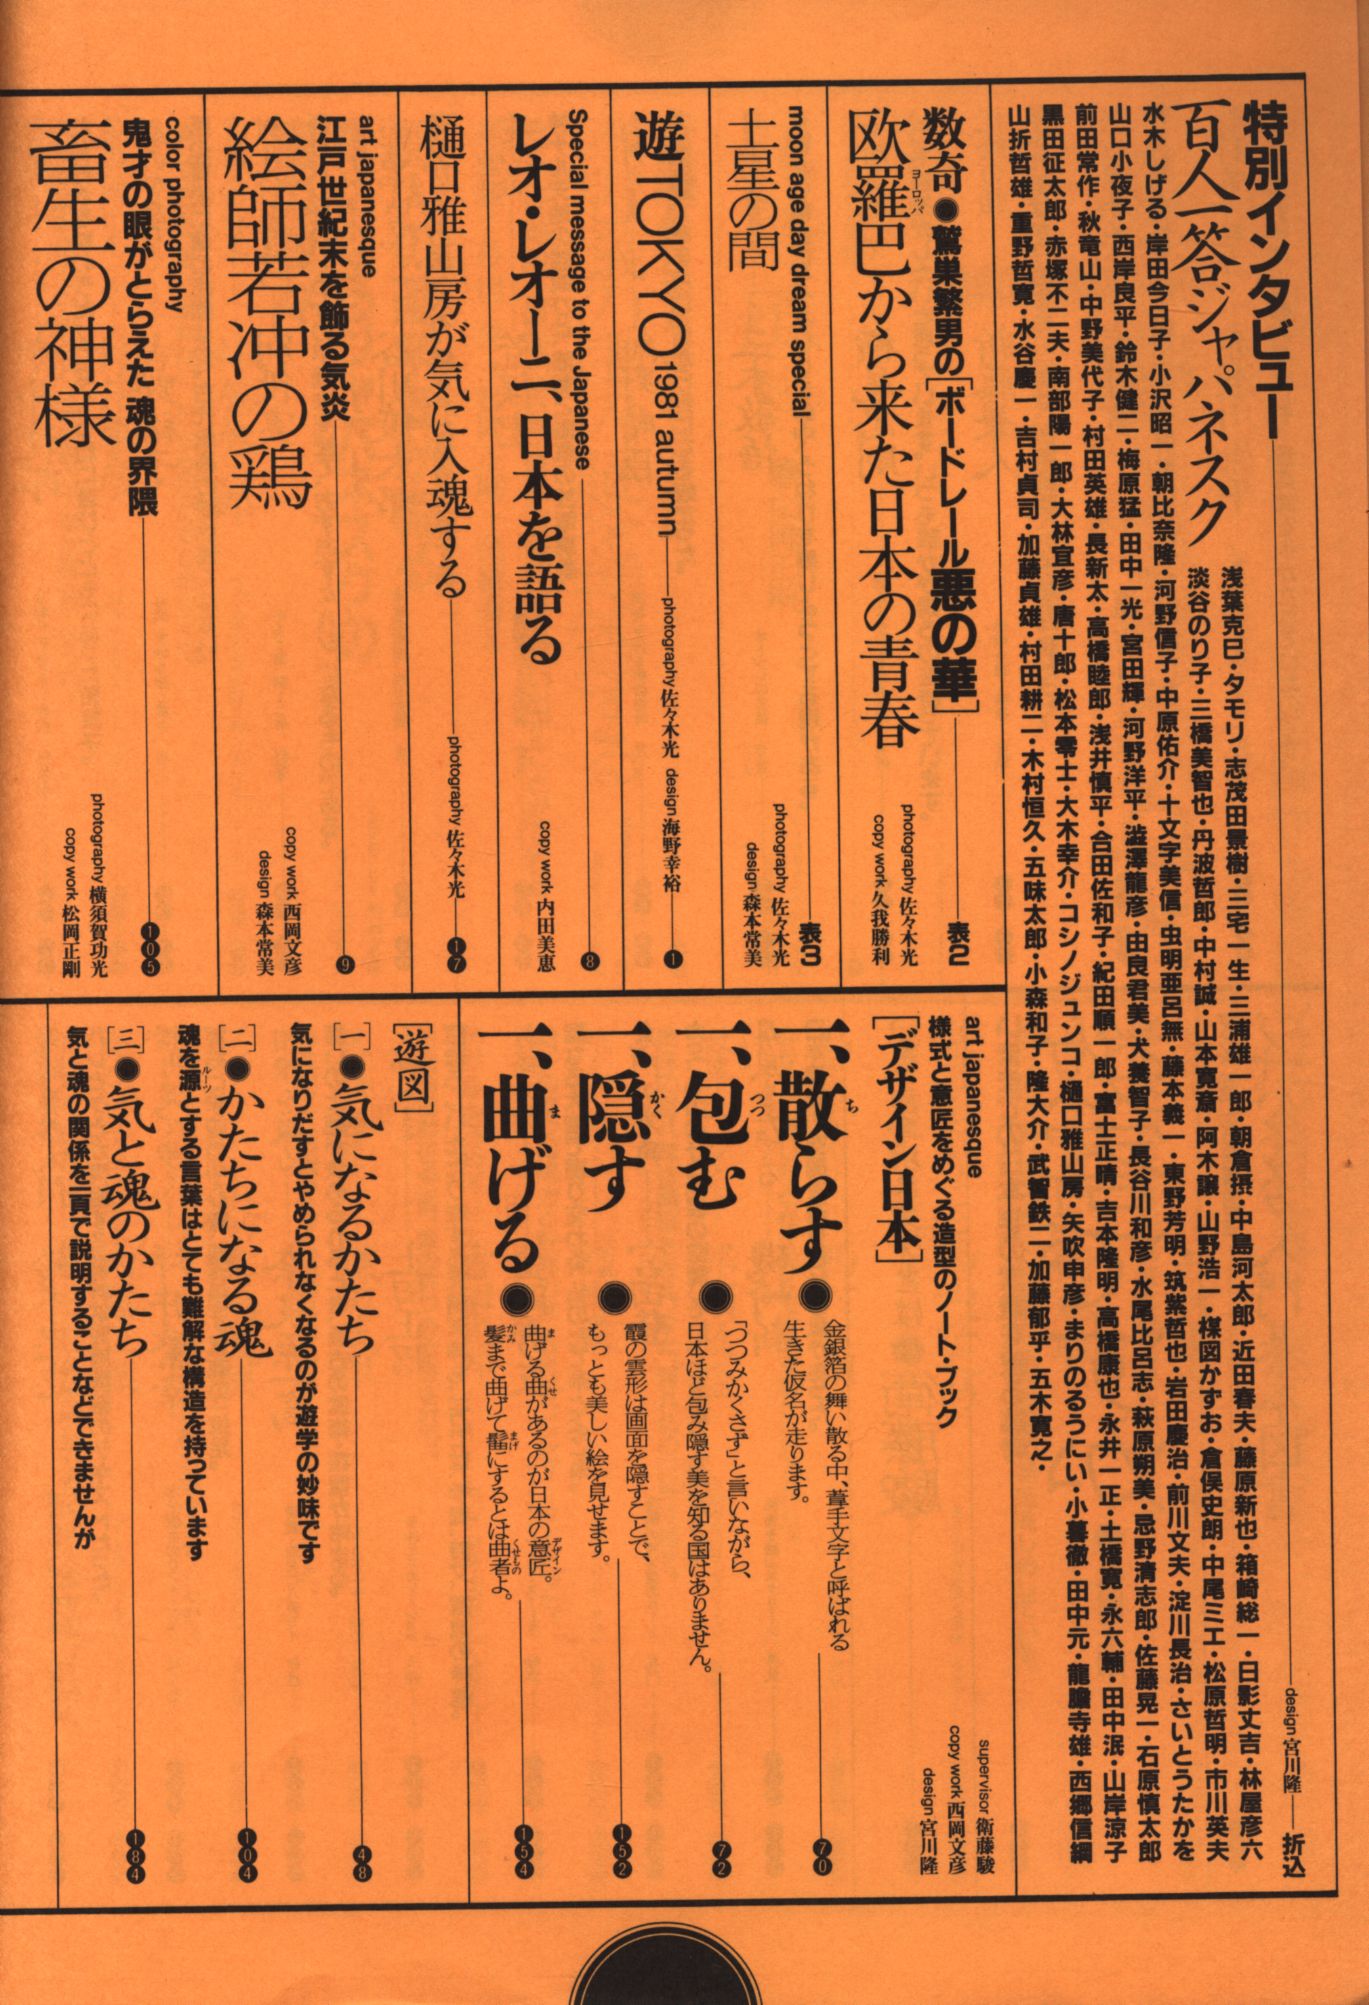 特別インタビュー
design 宮川隆
折込
百人一答ジャパネスク
浅葉克巳・タモリ・志茂田景樹・三宅一生・三浦雄一郎・朝倉摂・中島河太郎・近田春夫・藤原新也・箱崎総一・日影丈吉・林屋彦六
淡谷のり子・三橋美智也・丹波哲郎・中村誠・山本寛斎・阿木譲・山野浩一・楳図かずお・倉俣史朗・中尾ミエ・松原哲明・市川英夫
水木しげる・岸田今日子・小沢昭一・朝比奈隆・河野信子・中原佑介・十文字美信・虫明亜呂無・藤本義一・東野芳明・筑紫哲也・岩田慶治・前川文夫・淀川長治・さいとうたかを
山口小夜子・西岸良平・鈴木健二・梅原猛・田中一光・宮田輝・河野洋平・澁澤龍彦・由良君美・犬養智子・長谷川和彦・水尾比呂志・萩原朔美・忌野清志郎・佐藤晃一・石原慎太郎
前田常作・秋竜山・中野美代子・村田英雄・長新太・高橋睦郎・浅井慎平・合田佐和子・紀田順一郎・富士正晴・吉本隆明・高橋康也・永井一正・土橋寛・永六輔・田中泯・山岸涼子
黒田征太郎・赤塚不二夫・南部陽一郎・大林宣彦・唐十郎・松本零士・大木幸介・コシノジュンコ・樋口雅山房・矢吹申彦・まりのるうにい・小暮徹・田中元・龍膽寺雄・西郷信綱
山折哲雄・重野哲寛・水谷慶一・吉村貞司・加藤貞雄・村田耕二・木村恒久・五味太郎・小森和子・隆大介・武智鉄二・加藤郁乎・五木寛之・
数奇●鷲巣繁男の[ボードレール悪の華]
表2
欧羅巴から来た日本の青春
ヨーロッパ
photography 佐々木光
copy work 久我勝利
moon age day dream special
表3
土星の間
photography 佐々木光
design 森本常美
遊TOKYO1981 autumn
photography 佐々木光 design 海野幸裕
1
Special message to the Japanese
8
レオ・レオーニ、日本を語る
copy work 内田美恵
樋口雅山房が気に入魂する
photography 佐々木光
17
art japanesque
江戸世紀末を飾る気炎
9
絵師若冲の鶏
copy work 西岡文彦
design 森本常美
color photography
鬼才の眼がとらえた 魂の界隈
105
畜生の神様
photography 横須賀功光
copy work 松岡正剛
art japanesque
様式と意匠をめぐる造型のノート・ブック
[デザイン日本]
supervisor 衛藤駿
copy work 西岡文彦
design 宮川隆
一、散らす●
ち
金銀箔の舞い散る中、葦手文字と呼ばれる
生きた仮名が走ります。
70
一、包む●
つつ
「つつみかくさず」と言いながら、
日本ほど包み隠す美を知る国はありません。
72
一、隠す●
かく
霞の雲形は画面を隠すことで、
もっとも美しい絵を見せます。
152
一、曲げる●
ま
曲げる曲があるのが日本の意匠。
ま くせ デザイン
髪まで曲げて髷にするとは曲者よ。
かみ まげ くせもの
154
[遊図]
[一]●気になるかたち
48
気になりだすとやめられなくなるのが遊学の妙味です
[二]●かたちになる魂
104
魂を源とする言葉はとても難解な構造を持っています
ルーツ
[三]●気と魂のかたち
184
気と魂の関係を一頁で説明することなどできませんが